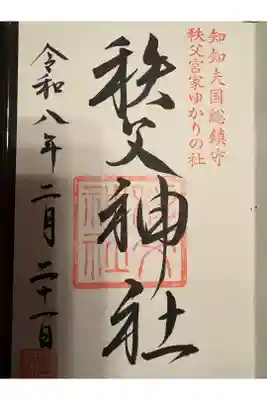 知知夫国総鎮守
秩父宮家ゆかりの社
秩父神社
令和八年二月二十一日